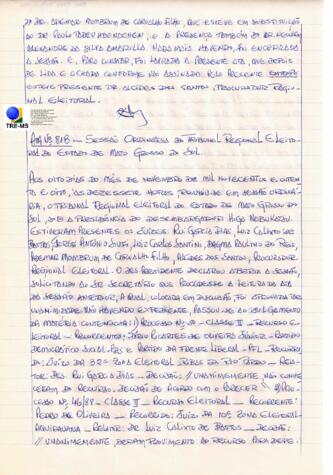 DE CARVALHO FILHO, QUE ESTEVE EM SUBSTITUIÇÃO
AO DR. PAULO E A PRESENÇA TAMBÉM DO DR.
ALEXANDRE DA SILVA NADA MAIS HAVENDO, FOI ENCERRADA
A SESSÃO E, PARA CONSTAR, FOI LAVRADA A PRESENTE ATA, QUE DEPOIS
DE LIDA E ACHADA CONFORME VAI ASSINADA PELO PRESIDENTE.
ESTEVE PRESENTE DR. ALCIDES DOS SANTOS, PROCURADOR REGIO-
NAL ELEITORAL.
TRE-MS
ATA Nº 818 - SESSÃO ORDINÁRIA DO TRIBUNAL REGIONAL ELEITO-
RAL DO ESTADO DE MATO GROSSO DO SUL
AOS OITO DIAS DO MÊS DE NOVEMBRO DE MIL NOVECENTOS E OITEN-
TA E OITO, ÀS DEZESSETE HORAS, REUNIU-SE EM SESSÃO ORDINÁ-
RIA, O TRIBUNAL REGIONAL ELEITORAL DO ESTADO DE MATO GROSSO DO
SUL, SOB A PRESIDÊNCIA DO DESEMBARGADOR HIGA NABUKATSU.
ESTIVERAM PRESENTES OS JUÍZES: RUI GARCIA DIAS, LUIZ CALIXTO DE
BASTOS, JORGE ANTONIO SIUFI, LUIZ CARLOS SANTINI, DAGMA PAULINO DOS REIS,
ADEMAR MOMBRUM DE CARVALHO FILHO, ALCIDES DOS SANTOS, PROCURADOR
REGIONAL ELEITORAL. O DES. PRESIDENTE DECLAROU ABERTA A SESSÃO,
SOLICITANDO AO SR. SECRETÁRIO QUE PROCEDESSE À LEITURA DA ATA
DA SESSÃO ANTERIOR, A QUAL, COLOCADA EM DISCUSSÃO, FOI APROVADA À
UNANIMIDADE. NÃO HAVENDO EXPEDIENTE, PASSOU-SE AO JULGAMENTO
DA MATÉRIA CONTENCIOSA: 1) PROCESSO Nº - CLASSE II - RECURSO E-
LEITORAL - RECORRENTES: DE OLIVEIRA JUNIOR - PARTIDO
DEMOCRÁTICO SOCIAL - PDS E PARTIDO DA FRENTE LIBERAL - PFL. RECORRI-
DO: JUÍZO DA 32ª ZONA ELEITORAL - RIBAS DO RIO PARDO - RELA-
TOR: DES. RUI GARCIA DIAS - DECISÃO: // UNANIMEMENTE, NÃO CONHE-
CERAM DO RECURSO. DECISÃO DE ACORDO COM O PARECER // 2) PRO-
CESSO Nº 46/88 - CLASSE II - RECURSO ELEITORAL - RECORRENTE:
PEDRO DE OLIVEIRA - RECORRIDO: JUIZ DA 10ª ZONA ELEITORAL
AQUIDAUANA - RELATOR: DR. LUIZ CALIXTO DE BASTOS - DECISÃO:
// UNANIMEMENTE, DERAM PROVIMENTO AO RECURSO PARA